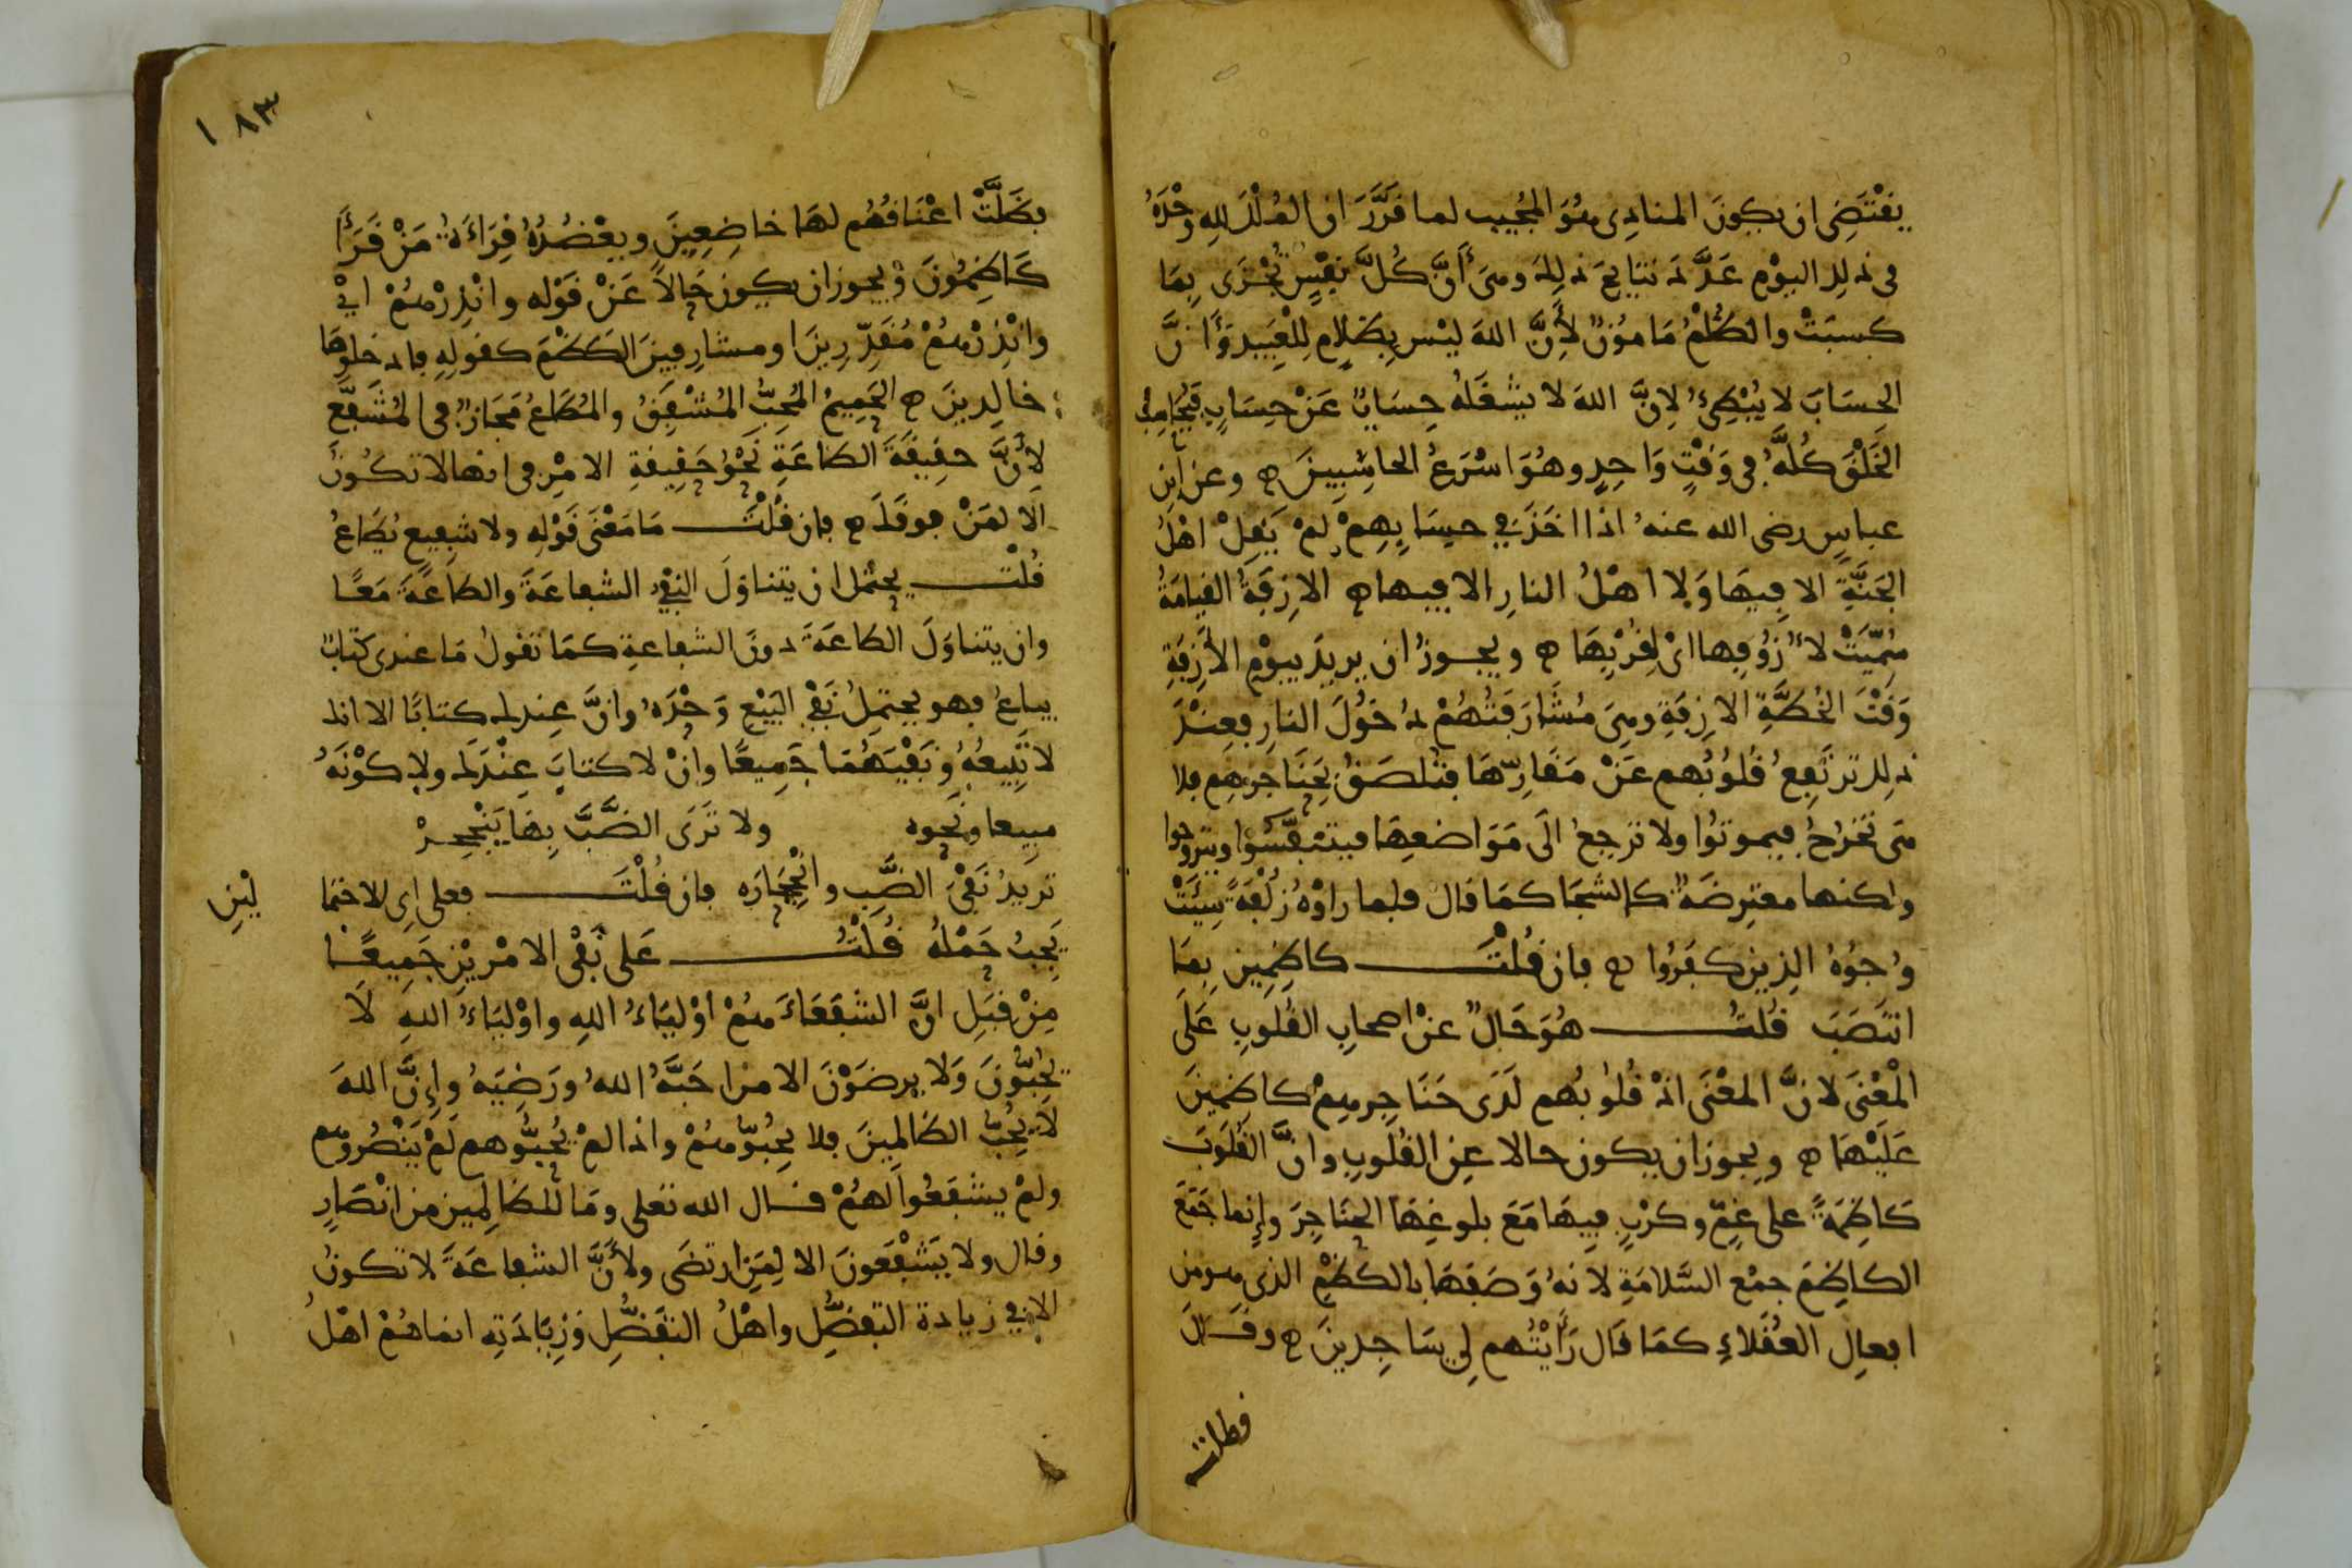 يقتضي ان يكون المنادى هو المجيب لما قرّر ان الملك لله وحده
في ذلك اليوم عدّد نتايج ذلك وهي أنّ كلّ نفس تجزى بما
كسبت والظلم مامون لأنّ الله ليس بظلام للعبيد وأنّ
الحساب لا يبطئ لانّ الله لا يشغله حساب عن حساب فيحاسب
الخلق كلّه في وقت واحد وهو اسرع الحاسبين ه وعن ابن
عباس رضى الله عنه اذا اخذ في حسابهم لم يقل اهل
الجنّة الا فيها ولا اهل النار الا فيها ه الازفة القيامة
سمّيت لأزوفها اي لقربها ه ويجوز ان يريد بيوم الأزفة
وقت الخطّة الازفة وهي مشارفتهم دخول النار فعند
ذلك ترتفع قلوبهم عن مقارّها فتلصق بحناجرهم فلا
هي تخرج فيموتوا ولا ترجع الى مواضعها فيتنفّسوا ويتروحوا
ولكنها معترضة كالشجا كما قال فلما راوه زلفة سيئت
وجوه الذين كفروا ه فان قلت كاظمين بما
انتصب قلت هو حال عن اصحاب القلوب على
المعنى لانّ المعنى اذ قلوبهم لدى حناجرهم كاظمين
عليها ه ويجوز ان يكون حالا عن القلوب وانّ القلوب
كاظمة على غمّ وكرب فيها مع بلوغها الحناجر وإنما جمع
الكاظم جمع السّلامة لانه وصفها بالكظم الذي هو من
افعال العقلاء كما قال رأيتهم لي ساجدين ه وقال
فظلت
١٨٣
فظلّت اعناقهم لها خاضعين ويعضده قراءة من قرأ
كاظمون ويجوز ان يكون حالا عن قوله وانذرهم اي
وانذرهم مقدّرين او مشارفين الكظم كقوله فادخلوها
خالدين ه الحميم المحبّ المشفق والمطاع مجاز في المشفّع
لأنّ حقيقة الطاعة نحو حقيقة الامر في انها لا تكون
الا لمن فوقك ه فان قلت ما معنى قوله ولا شفيع يطاع
قلت يحتمل ان يتناول النفي الشفاعة والطاعة معا
وان يتناول الطاعة دون الشفاعة كما تقول ما عندى كتاب
يباع فهو يحتمل نفي البيع وحده وانّ عندك كتابا الا انك
لا تبيعه ونفيهما جميعا وان لا كتاب عندك ولا كونه
مبيعا ونحوه ولا ترى الضّبّ بها ينجحر
تريد نفي الضّب وانجحاره فان قلت فعلى اي الاحتما
لين
يجب حمله قلت على نفي الامرين جميعا
من قبل انّ الشفعاء هم اولياء الله واولياء الله لا
يحبّون ولا يرضون الا من احبّه الله ورضيه وإنّ الله
لا يحبّ الظالمين فلا يحبّوهم واذا لم يحبّوهم لم ينصروهم
ولم يشفعوا لهم قال الله تعلى وما للظالمين من انصار
وقال ولا يشفعون الا لمن ارتضى ولأنّ الشفاعة لا تكون
الا في زيادة التفضّل واهل التفضّل وزيادته انما هم اهل